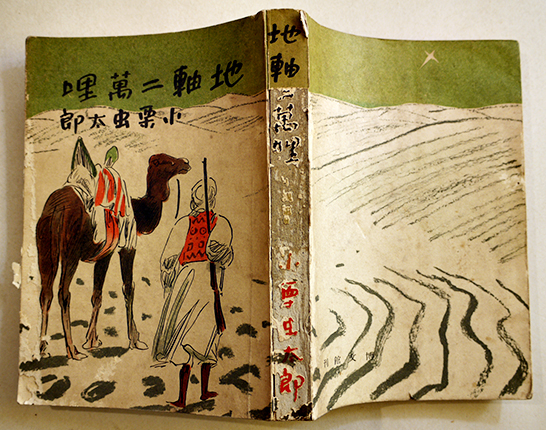 地軸二萬哩
小栗虫太郎
地軸二萬哩
小栗虫太郎
博文館刊